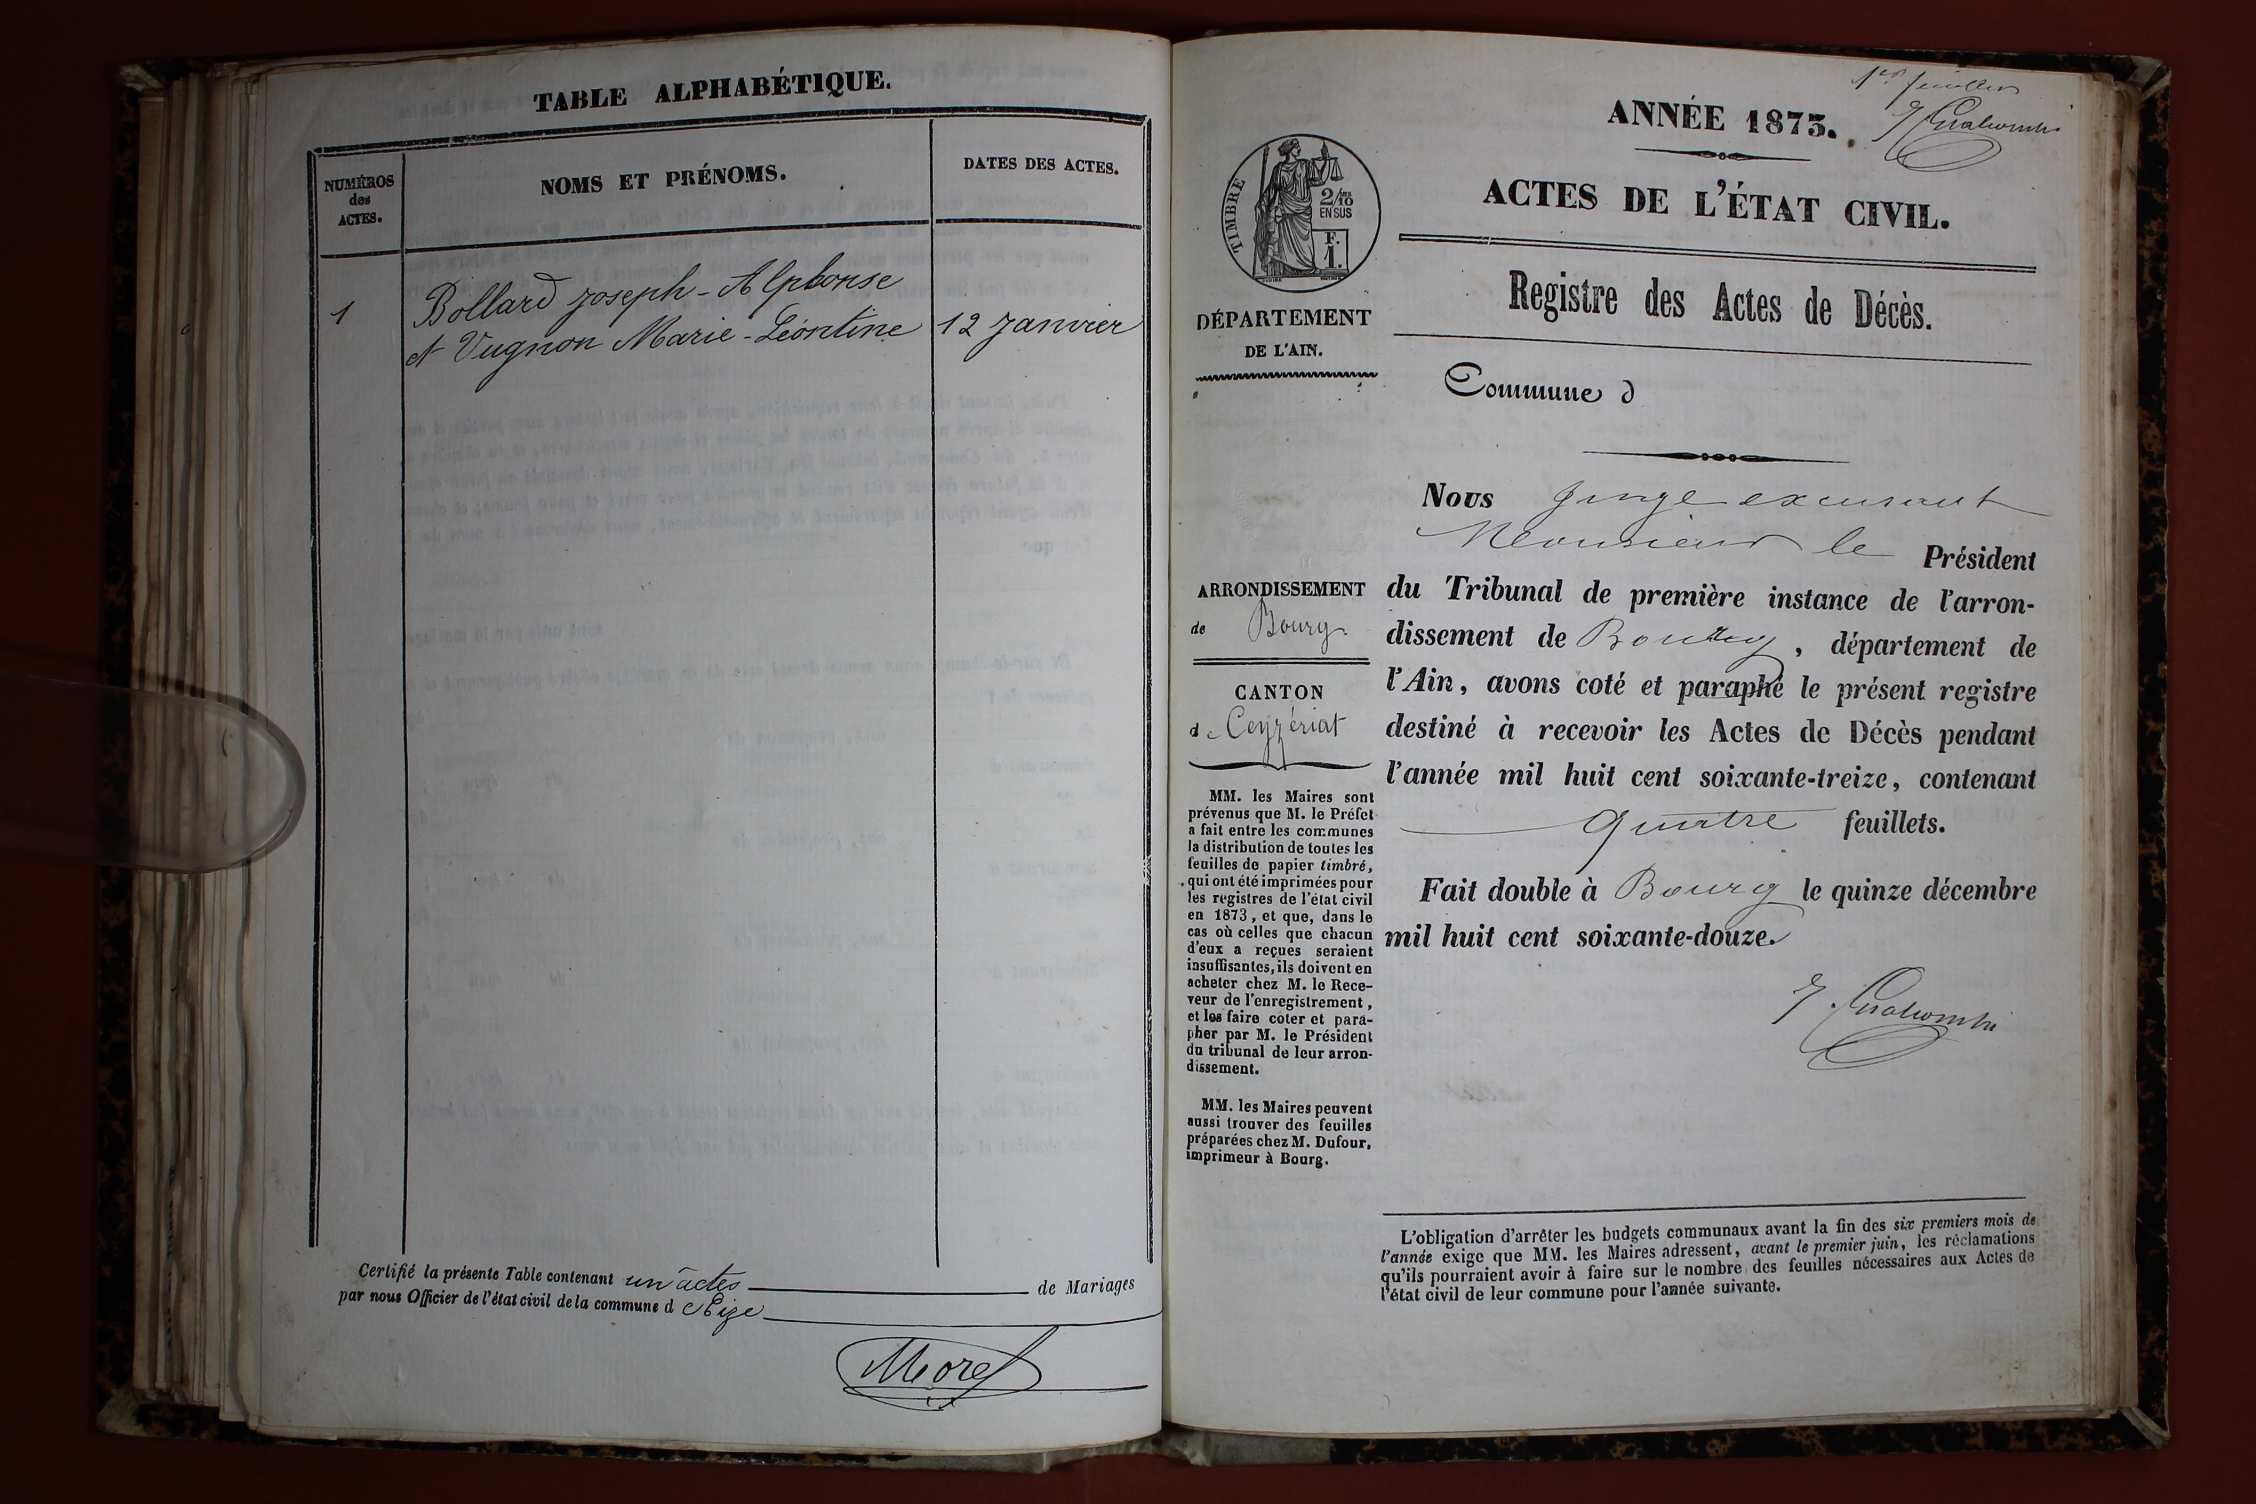 TABLE ALPHABÉTIQUE.
NUMÉROS
des
ACTES.
NOMS ET PRÉNOMS.
DATES DES ACTES.
1
Bollard Joseph-Alphonse
et Vugnon Marie-Léontine
12 Janvier
Certifié la présente Table contenant un actes de Mariages
par nous Officier de l'état civil de la commune d
Morel
1er feuillet
ANNÉE 1873.
ACTES DE L'ÉTAT CIVIL.
Registre des Actes de Décès.
TIMBRE
2/10
EN SUS
F.
1.
DÉPARTEMENT
DE L'AIN.
Commune d
ARRONDISSEMENT
de Bourg
CANTON
de Ceyzériat
MM. les Maires sont
prévenus que M. le Préfet
a fait entre les communes
la distribution de toutes les
feuilles de papier timbré,
qui ont été imprimées pour
les registres de l'état civil
en 1873, et que, dans le
cas où celles que chacun
d'eux a reçues seraient
insuffisantes, ils doivent en
acheter chez M. le Rece-
veur de l'enregistrement,
et les faire coter et para-
pher par M. le Président
du tribunal de leur arron-
dissement.
MM. les Maires peuvent
aussi trouver des feuilles
préparées chez M. Dufour,
imprimeur à Bourg.
Nous Juge excusant
Monsieur le Président
du Tribunal de première instance de l'arron-
dissement de Bourg, département de
l'Ain, avons coté et paraphé le présent registre
destiné à recevoir les Actes de Décès pendant
l'année mil huit cent soixante-treize, contenant
quatre feuillets.
Fait double à Bourg le quinze décembre
mil huit cent soixante-douze.
L'obligation d'arrêter les budgets communaux avant la fin des six premiers mois de
l'année exige que MM. les Maires adressent, avant le premier juin, les réclamations
qu'ils pourraient avoir à faire sur le nombre des feuilles nécessaires aux Actes de
l'état civil de leur commune pour l'année suivante.